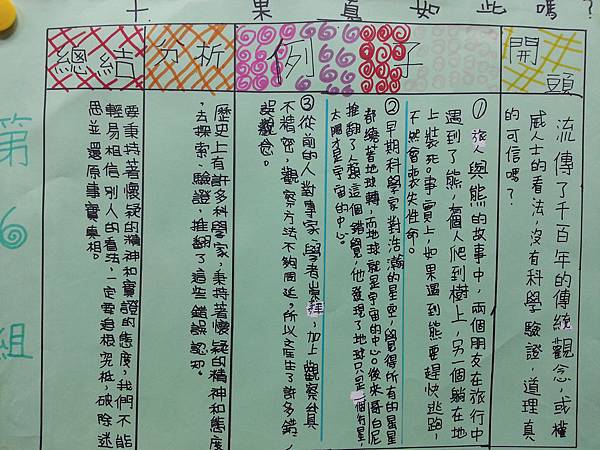 十、果真如此嗎？
開頭
流傳了千百年的傳統觀念，或權
威人士的看法，沒有科學驗證，道理真
的可信嗎？
例子
①旅人與熊的故事中，兩個朋友在旅行中
遇到了熊，一個人爬到樹上，另一個躺在地
上裝死。事實上，如果遇到熊要趕快逃跑，
不然會喪失性命。
②早期科學家對浩瀚的星空，覺得所有的星星
都繞著地球轉，而地球就是宇宙的中心。後來哥白尼
推翻了人類這個錯覺，他發現了地球只是一個行星，
太陽才是宇宙的中心。
③從前的人對專家、學者崇拜，加上觀察儀器
不精密，觀察方法不夠周延，所以產生了許多錯
誤觀念。
分析
歷史上有許多科學家，秉持著懷疑的精神和態度
，去探索、驗證，推翻了這些錯誤認知。
總結
要秉持著懷疑的精神和實證的態度，我們不能
輕易相信別人的看法，一定要追根究柢，破除迷
思並還原事實真相。
第6組